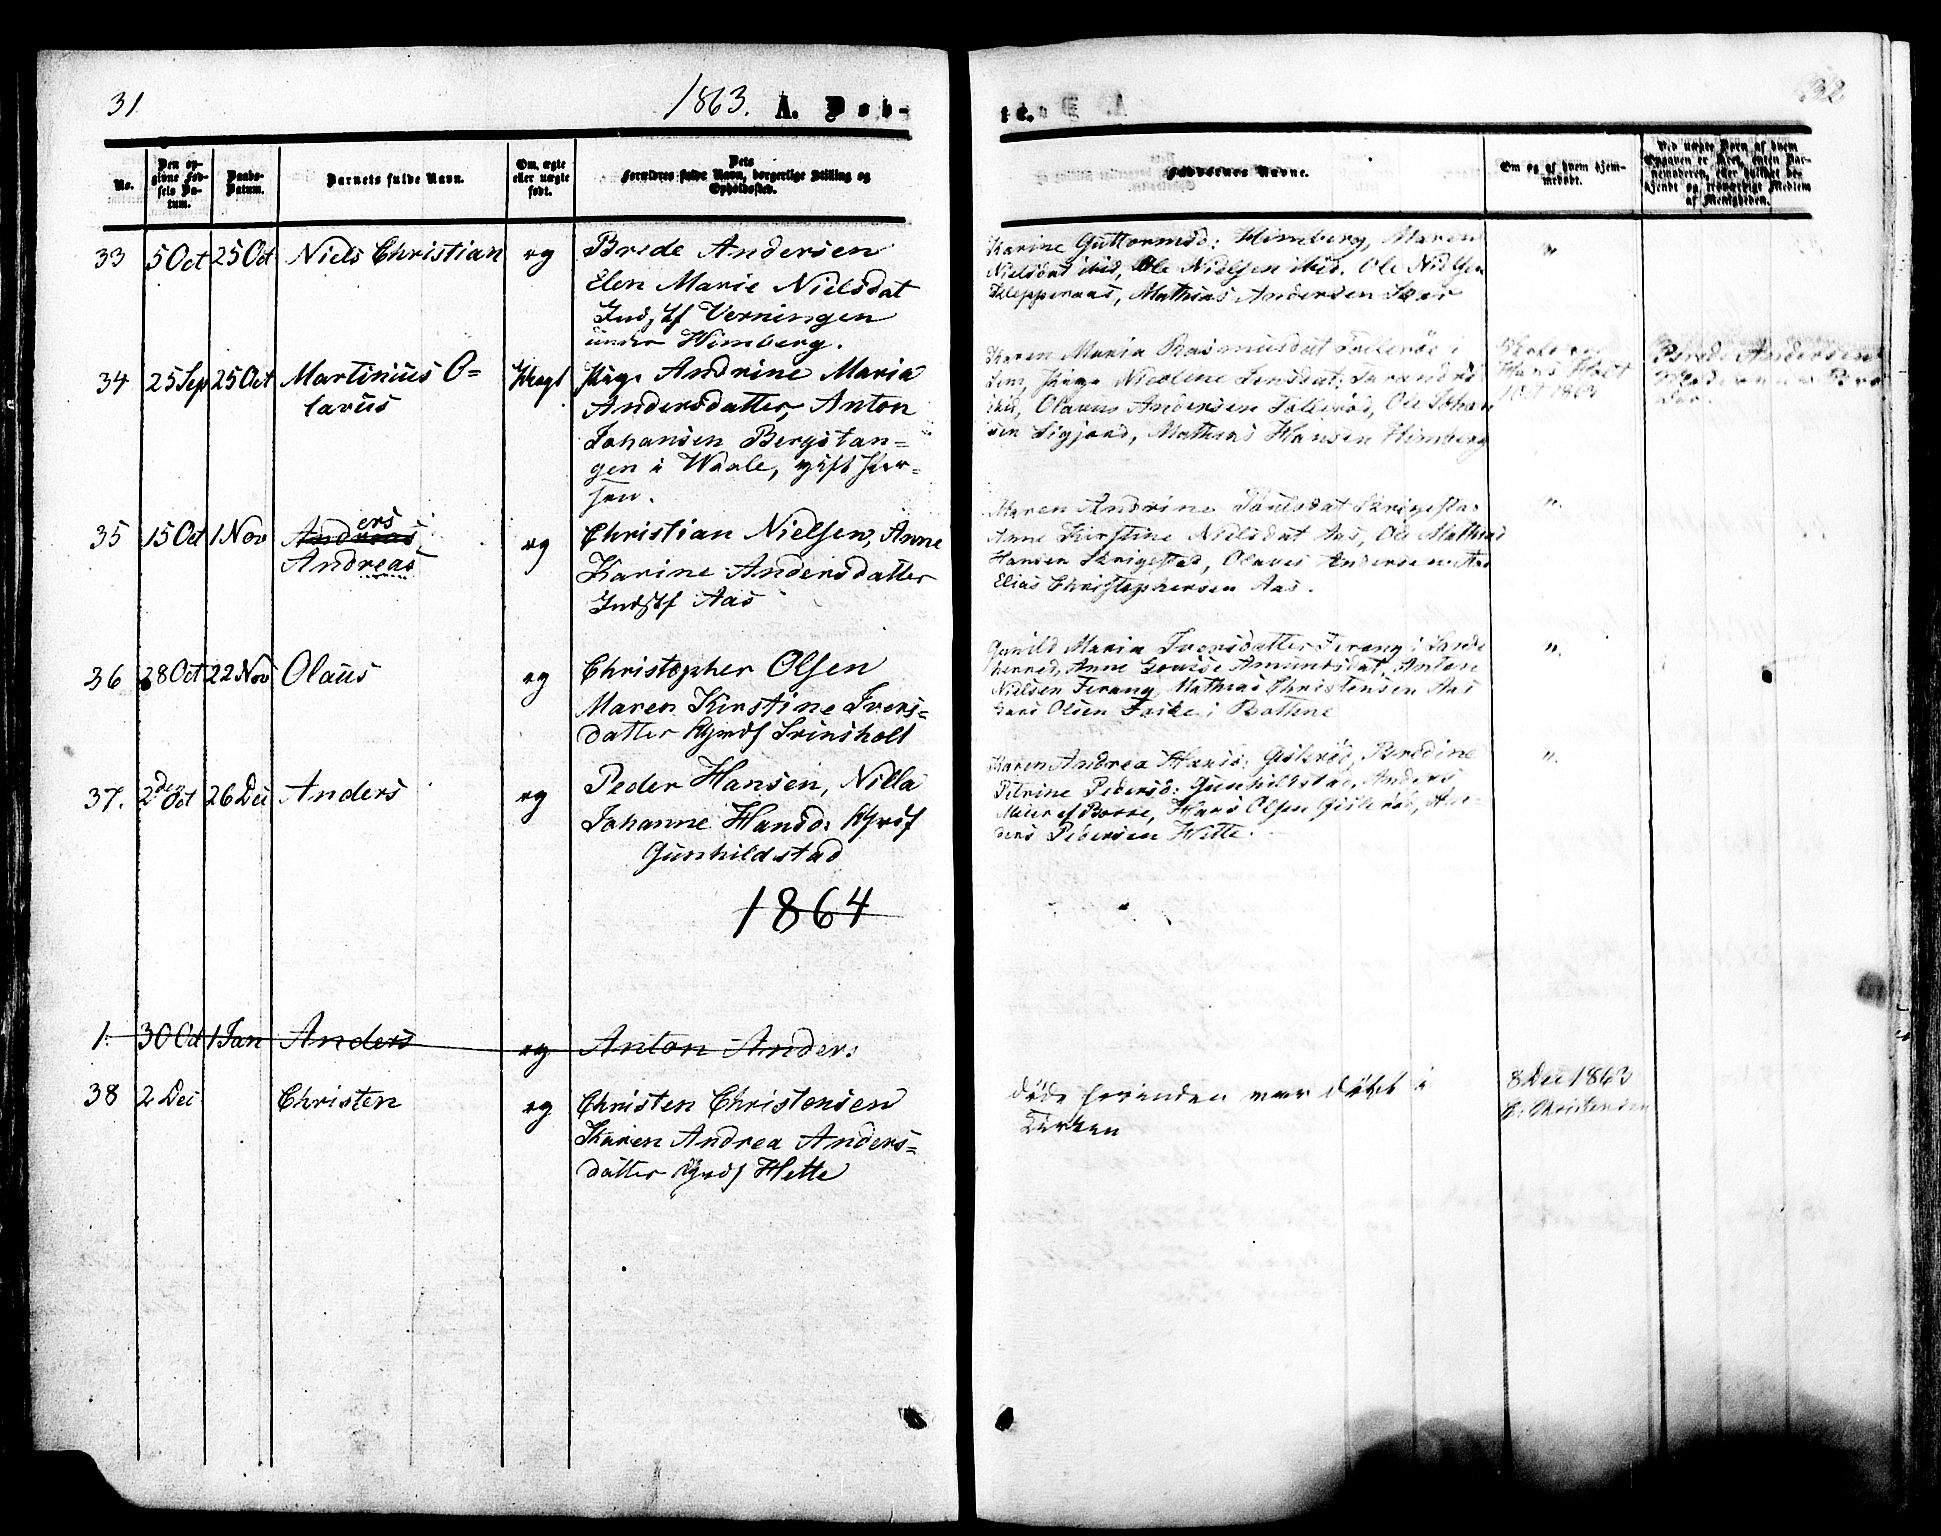 31
1863. A. Døb-
No.
Den op-
givne Fød-
sels Da-
tum.
Daabs-
Datum.
Barnets fulde Navn.
Om ægte
eller uægte
født.
Dets
Forældres fulde Navn, borgerlige Stilling og
Opholdssted.
33 5 Oct 25 Oct Niels Christian eg Brede Andersen
Elen Marie Nielsdat
Verningen
under Himberg.
34 25 Sep 25 Oct Martinius O=
lavus
Uægt Pige Andrine Maria
Andersdatter, Anton
Johansen Bergstan=
gen i Waale, gift
35 15 Oct 1 Nov Anders
Andreas
eg Christian Nielsen, Anne
Karine Andersdatter
Indstf Aas
36 28 Oct 22 Nov Olaus eg Christopher Olsen
Maren Kirstine Ivers=
datter Gmdf
37. 2den Oct 26 Dec Anders eg Peder Hansen, Nilla
Johanne Hansd: Gmdf
Gunhildstad
1864
1. 30 Oct 1 Jan Anders eg Anton Anders
38 2 Dec Christen eg Christen Christensen
Karen Andrea Anders=
datter Gmdf Hette
32
te.
Faddernes Navne.
Om og af hvem hjem-
medøbt.
Ved uægte Børn af hvem
Opgaven er skeet, enten Bar-
nemoderen, eller hvilket be-
kjendt og troværdigt Medlem
af Menigheden.
Karine Guttormsd: Himberg, Maren
Nielsdat ibid, Ole Nielsen ibid. Ole Nielsen
Klepperaas, Mathias Andersen
"
Karen Maria Rasmusdat Tollerød i
Sem, Pige Nicoline Jensdat,
ibid, Olavus Andersen Tollerød, Ole Johan
sen, Mathias Hansen Himberg
Hans Holt
1 Oct 1863
Brede Andersen
Moderens Bro
der.
Maren Andrine Paulsdat Skrigestad
Anne Kirstine Nielsdat Aas, Ole Mathias
Hansen Skrigestad, Olaves Andersen Aas
Elias Christophersen Aas.
".
Gunild Maria Iversdatter Ferang i Sande
herred, Anne Lovise Amundsdat, Anton
Nielsen Ferang, Mathias Christensen Aas
Hans Olsen Foske i Bothne
".
Karen Andrea Hansd: Gislerød, Bredine
Petrine Pedersd: Gunhildstad, Anders
Meier af Borre, Hans Olsen Gislerød, An-
ders Pedersen Hette.
".
døde forinden var døbt i
Kirken
8 Dec 1863
C. Christensen